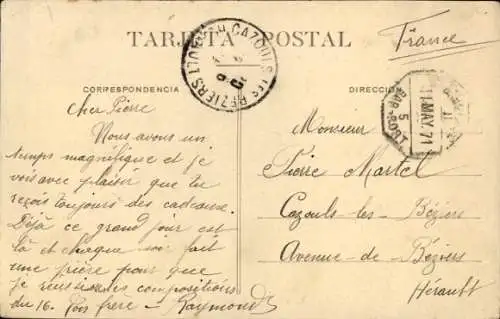 TARJETA POSTAL
France
CAZOULS-LES-BEZIERS
CORRESPONDENCIA
DIRECCIÓN
11.MAY.71
5
Cher Pierre
Nous avons un
temps magnifique et je
vois avec plaisir que tu
reçois toujours des cadeaux.
Déjà ce grand jour est
là et chaque soir fait
une prière pour que
je réussisse les compositions
du 16. Ton frère — Raymond
Monsieur
Pierre Martel
Cazouls-les-Béziers
Avenue de Béziers
Hérault